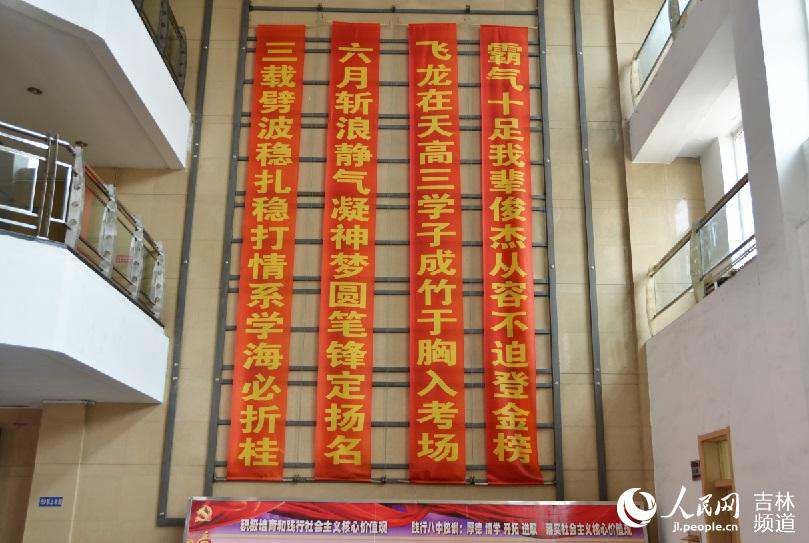 三载劈波稳扎稳打情系学海必折桂
六月斩浪静气凝神梦圆笔锋定扬名
飞龙在天高三学子成竹于胸入考场
霸气十足我辈俊杰从容不迫登金榜
积极培育和践行社会主义核心价值观 践行八中校训：厚德 博学 开拓 进取 落实社会主义核心价值观
人民网 吉林频道
jl.people.cn